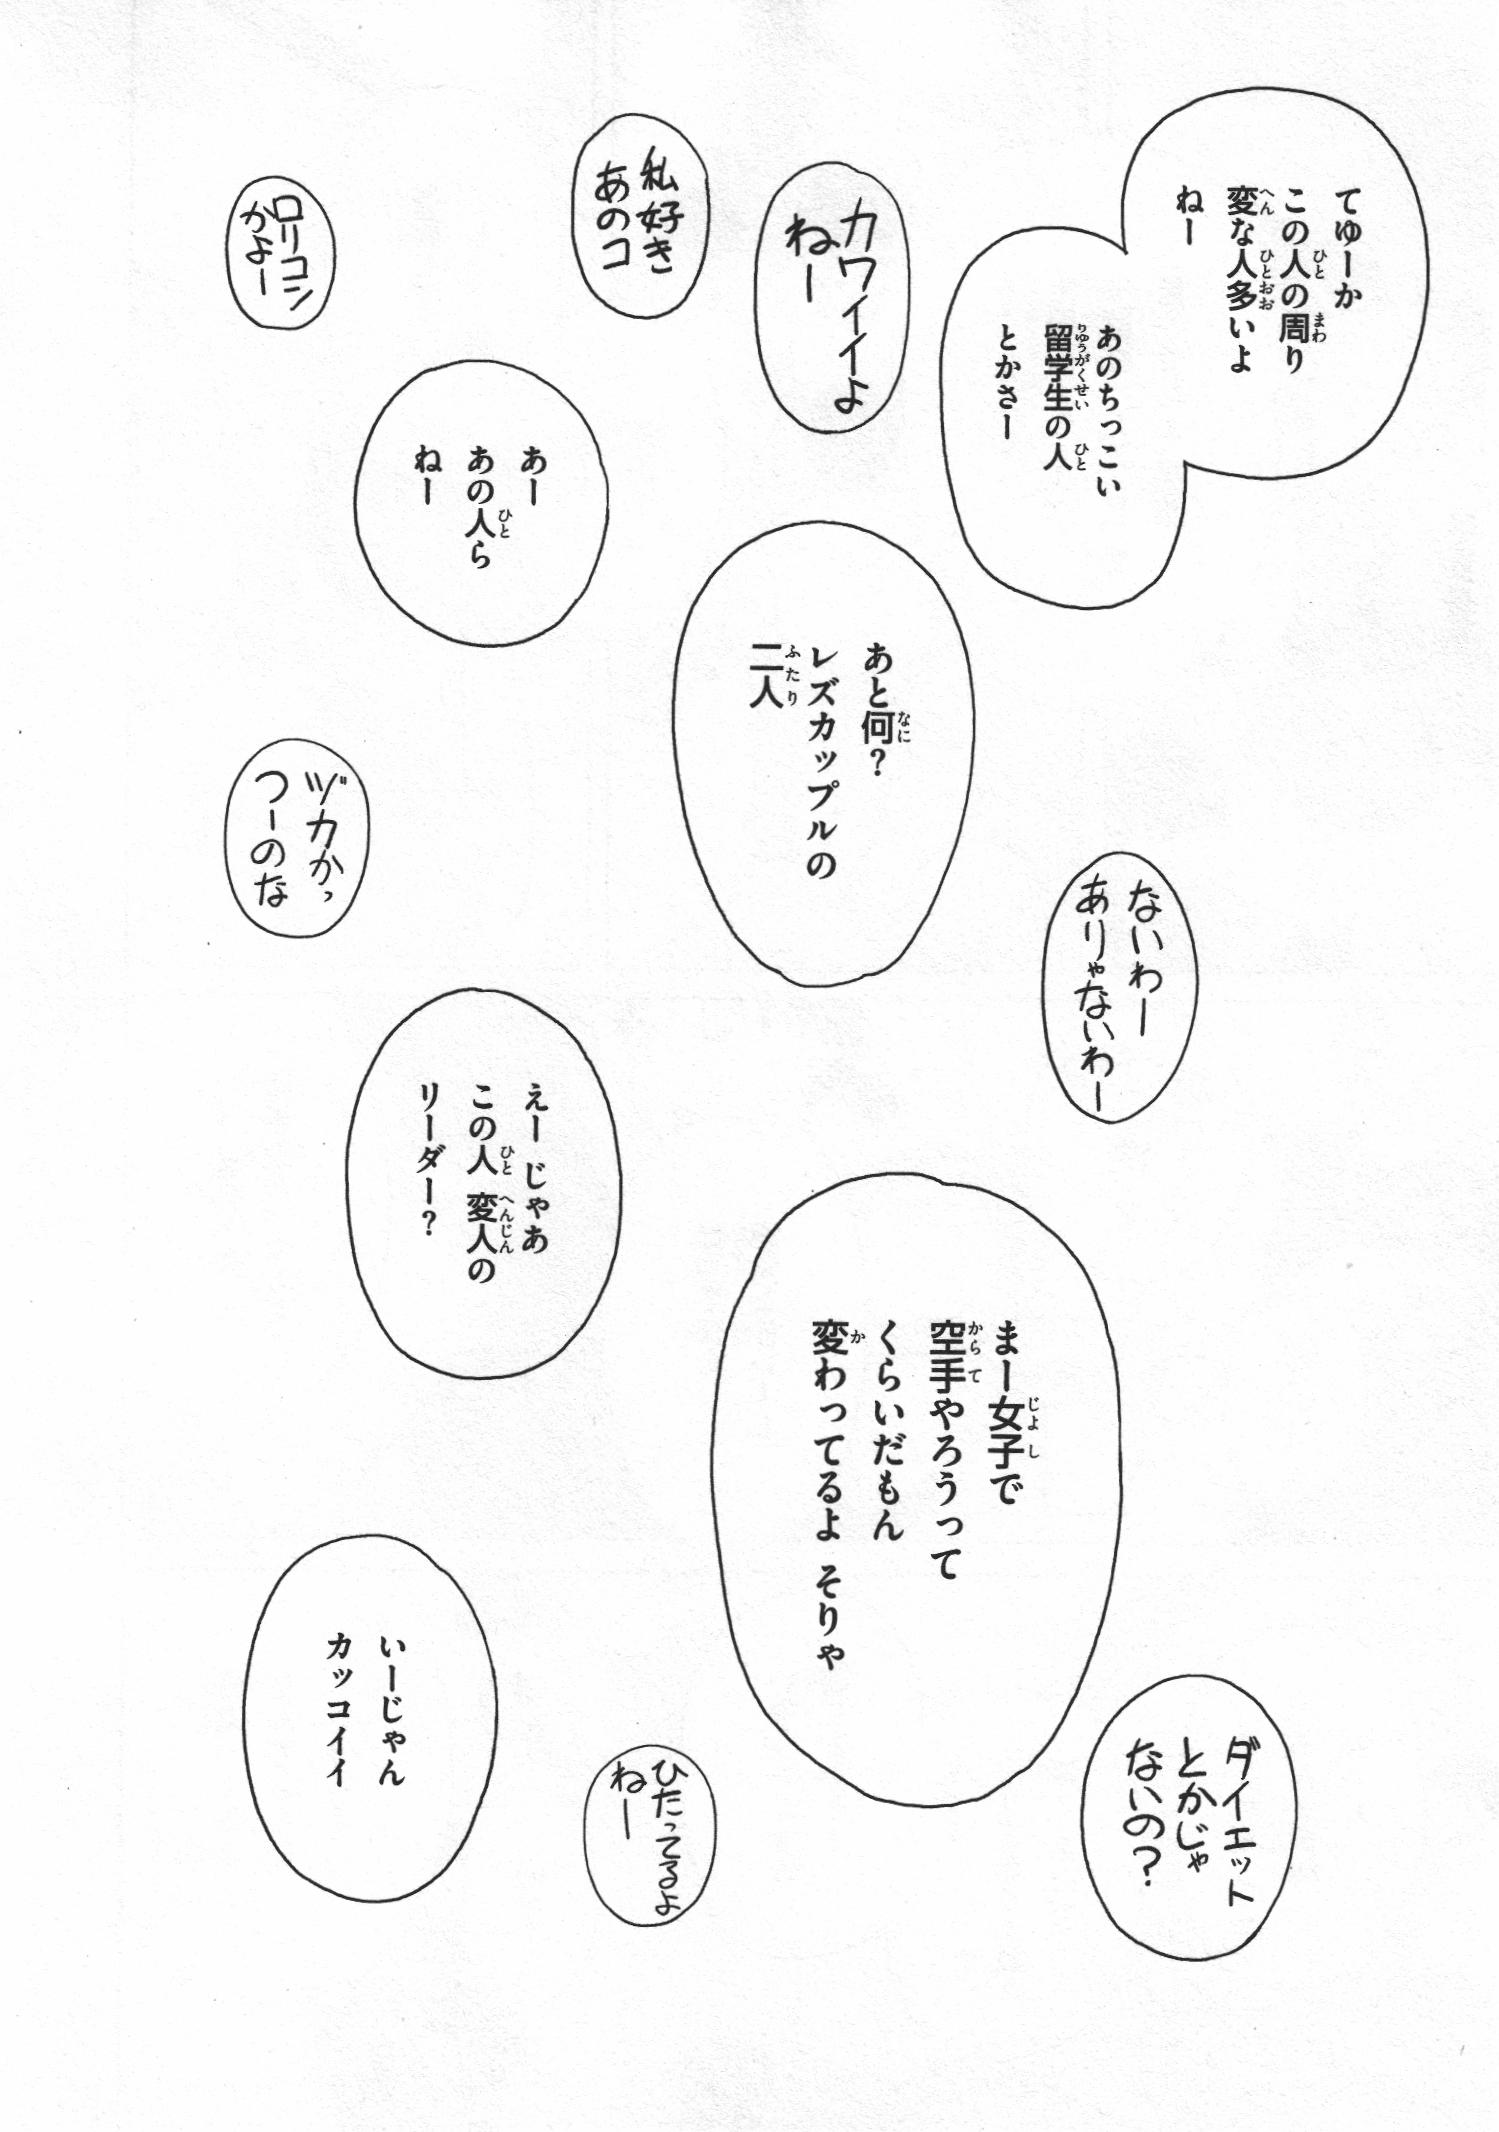 てゆーか
この人の周り
変な人多いよ
ねー
あのちっこい
留学生の人
とかさー
カワイイよ
ねー
私好き
あのコ
ロリコン
かよー
あー
あの人ら
ねー
あと何？
レズカップルの
二人
ないわー
ありゃないわー
ヅカかっ
つーのな
えー じゃあ
この人 変人の
リーダー？
まー女子で
空手やろうって
くらいだもん
変わってるよ そりゃ
ダイエット
とかじゃ
ないの？
ひたってるよ
ねー
いーじゃん
カッコイイ